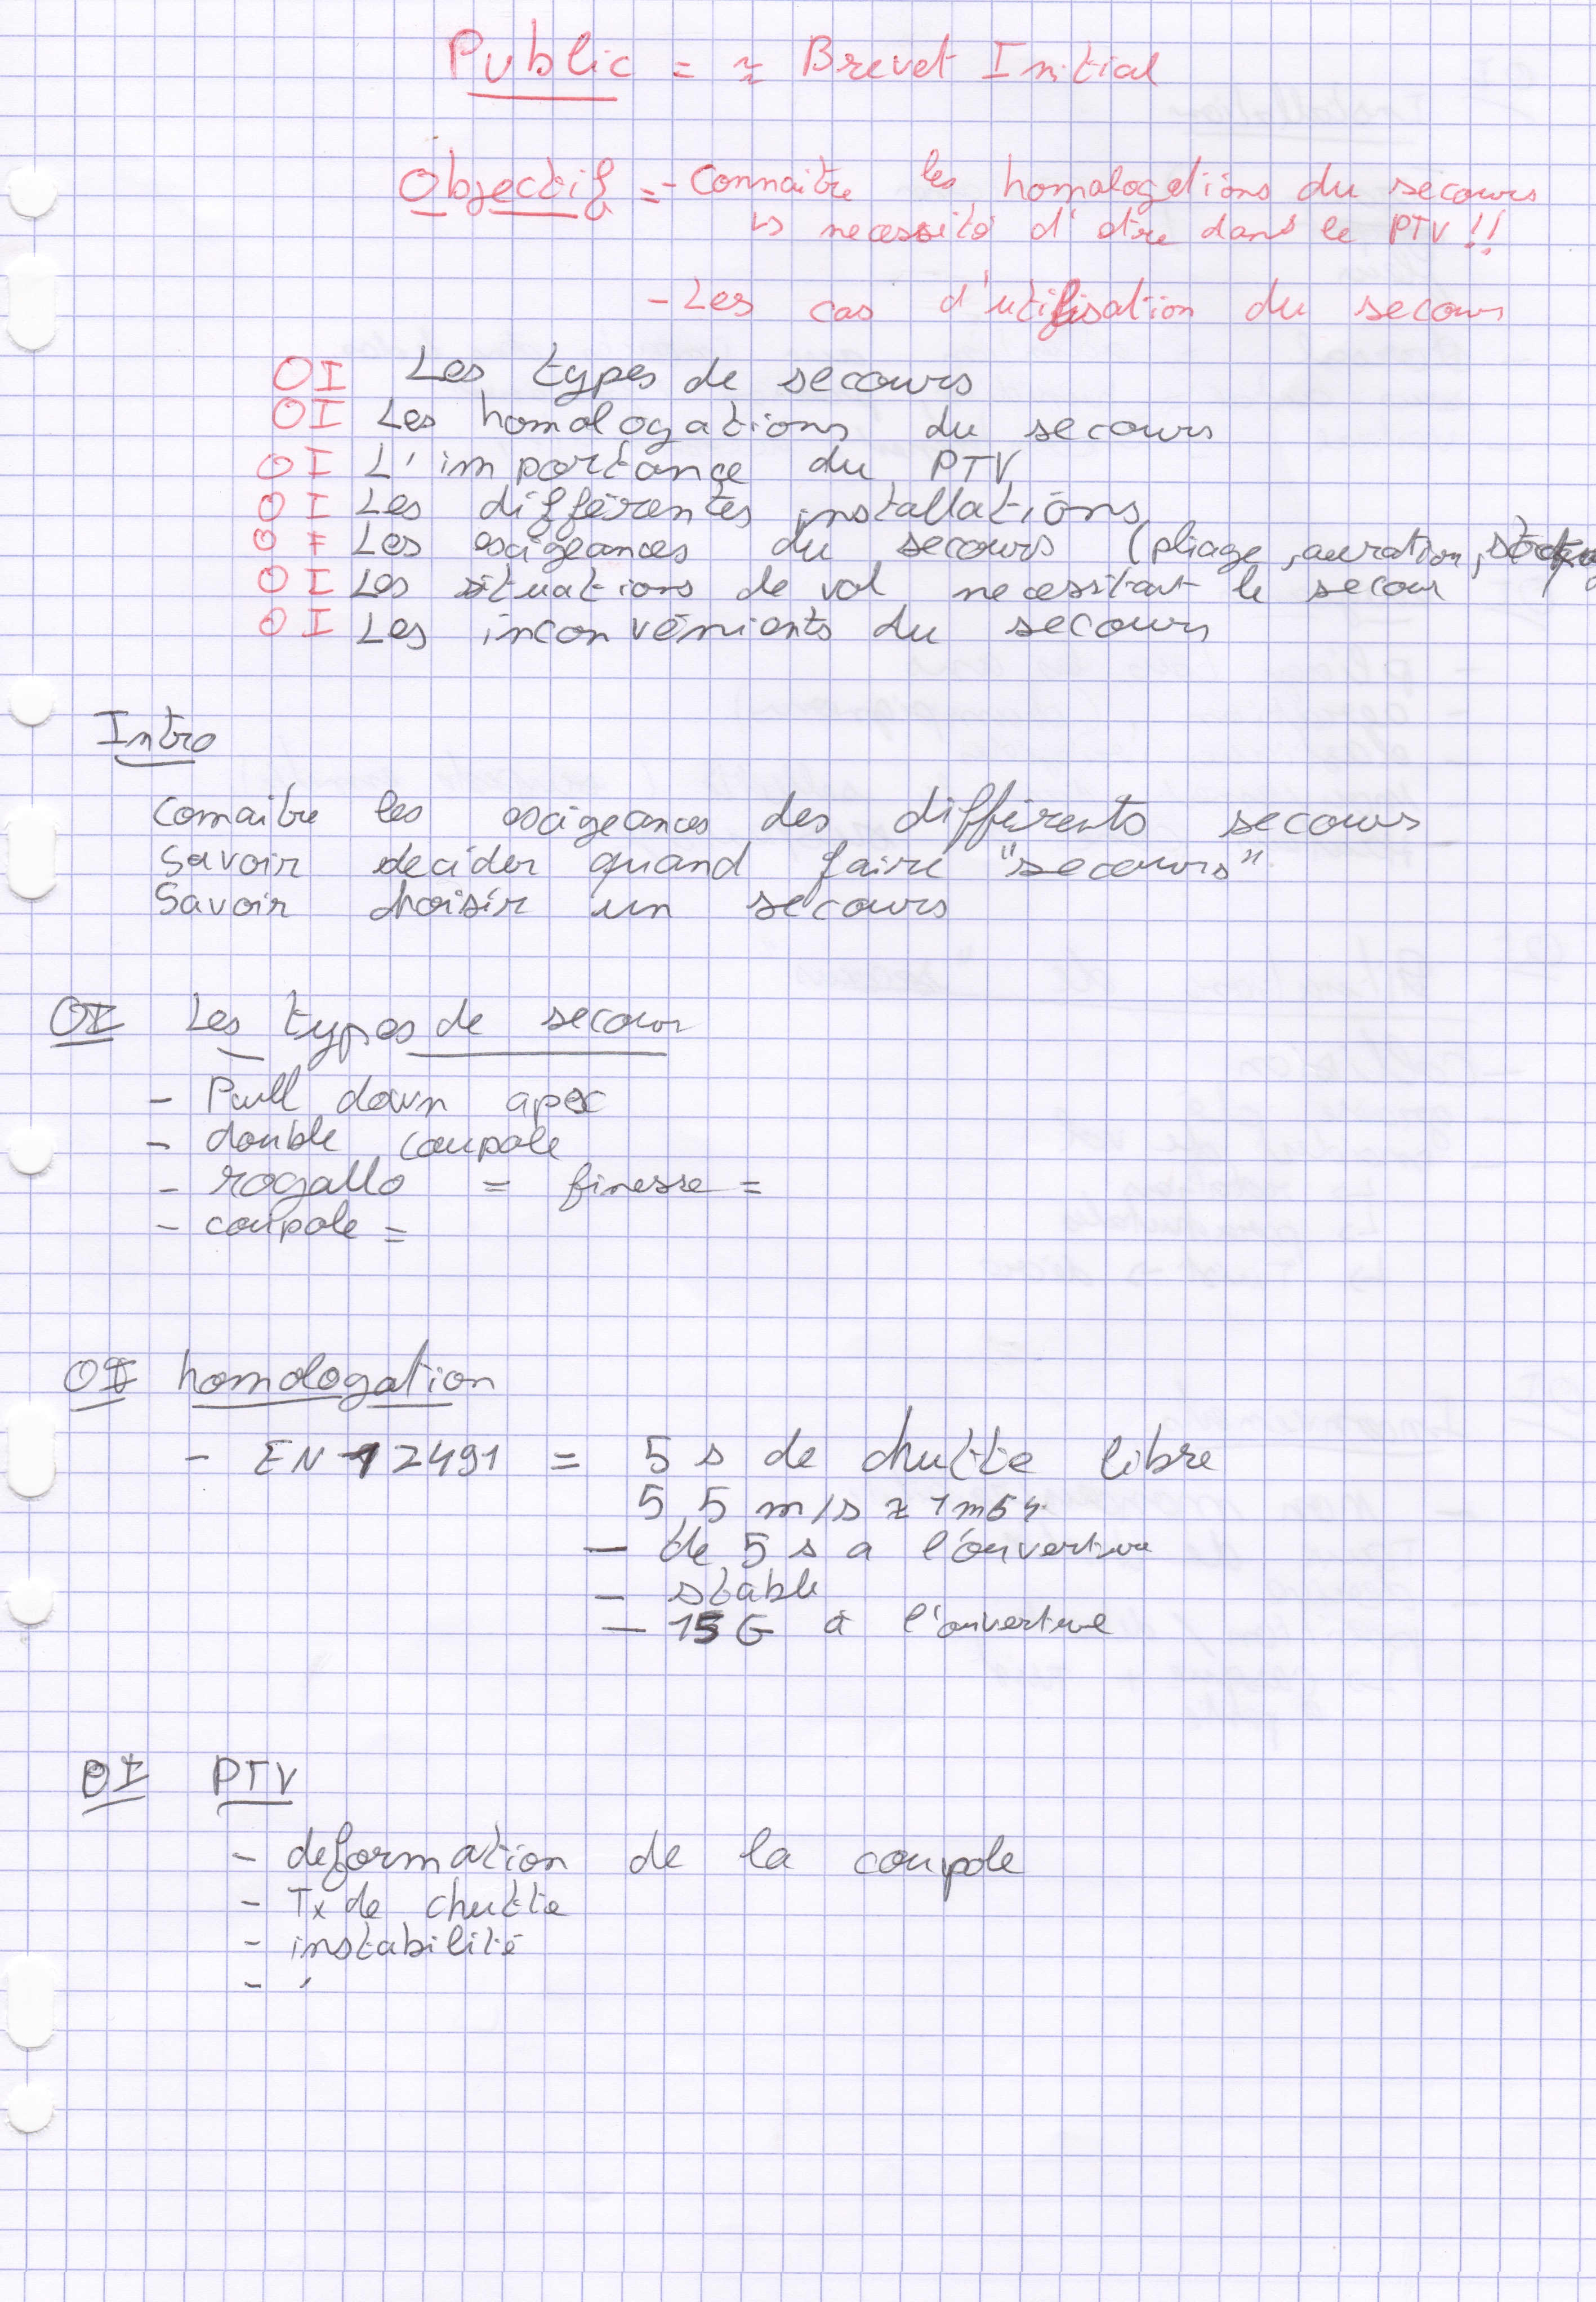 Public = ≈ Brevet Initial
Objectif = - Connaitre les homologations du secours
↳ necessité d'être dans le PTV !!
- Les cas d'utilisation du secours
OI Les types de secours
OI Les homologations du secours
OI L'importance du PTV
OI Les différentes installations
OI Les exigeances du secours (pliage, aeration,
OI Les situations de vol necessitant le secour
OI Les inconvénients du secours
Intro
Connaitre les exigeances des différents secours
Savoir decider quand faire "secours"
Savoir choisir un secours
OI Les types de secour
- Pull down apex
- double coupole
- rogallo = finesse =
- coupole =
OI homologation
- EN 12491 = 5 s de chutte libre
5,5 m/s ≈ 1m54
- de 5 s a l'ouverture
- stable
- 15 G à l'ouverture
OI PTV
- deformation de la coupole
- Tx de chutte
- instabilité
-